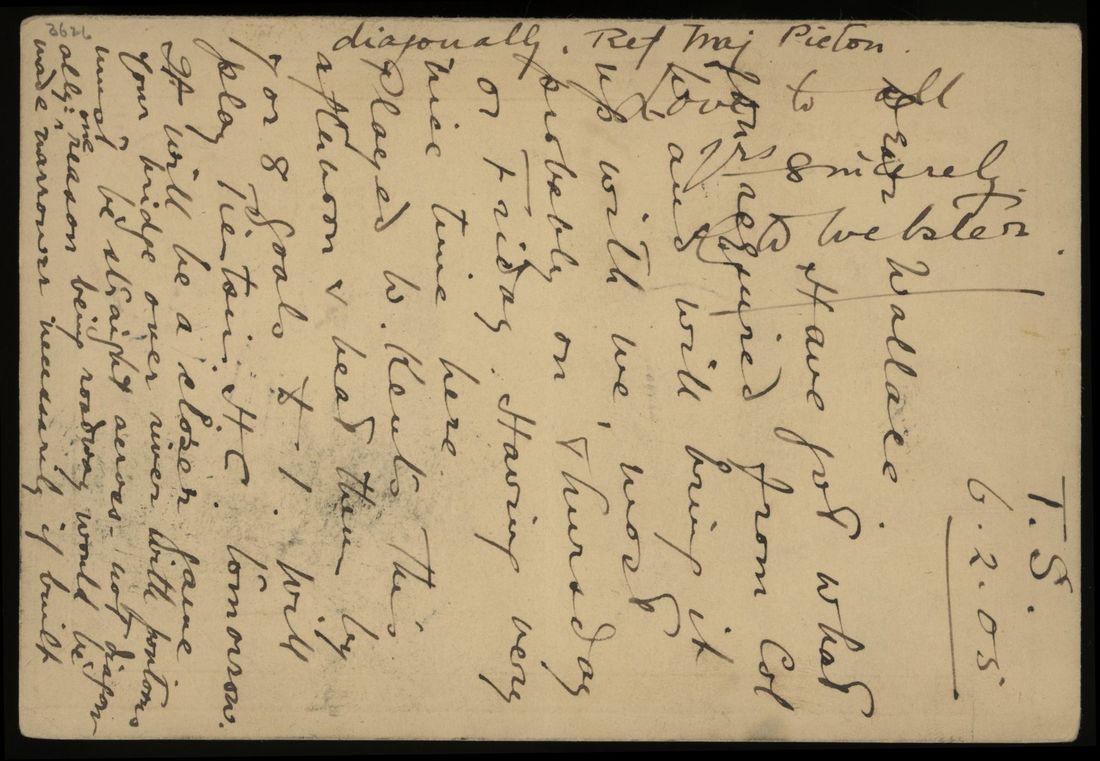 T.S.
6.2.05
Dear Wallace.
Have got what
you required from Col
and will bring it
up with me, most
probably on Thursday
or Friday. Having very
nice time here.
Played W. Kents this
afternoon & beat them by
7 or 8 goals to 1 will
play Tientsin HC tomorrow.
It will be a closer game
Your bridge over river with pontoons
must be straight across - not diagon
ally, one reason being roadway would be
made narrower necessarily if built
diagonally. Ref Maj Picton.
Love to all
Yrs sincerely
Webster.
3626